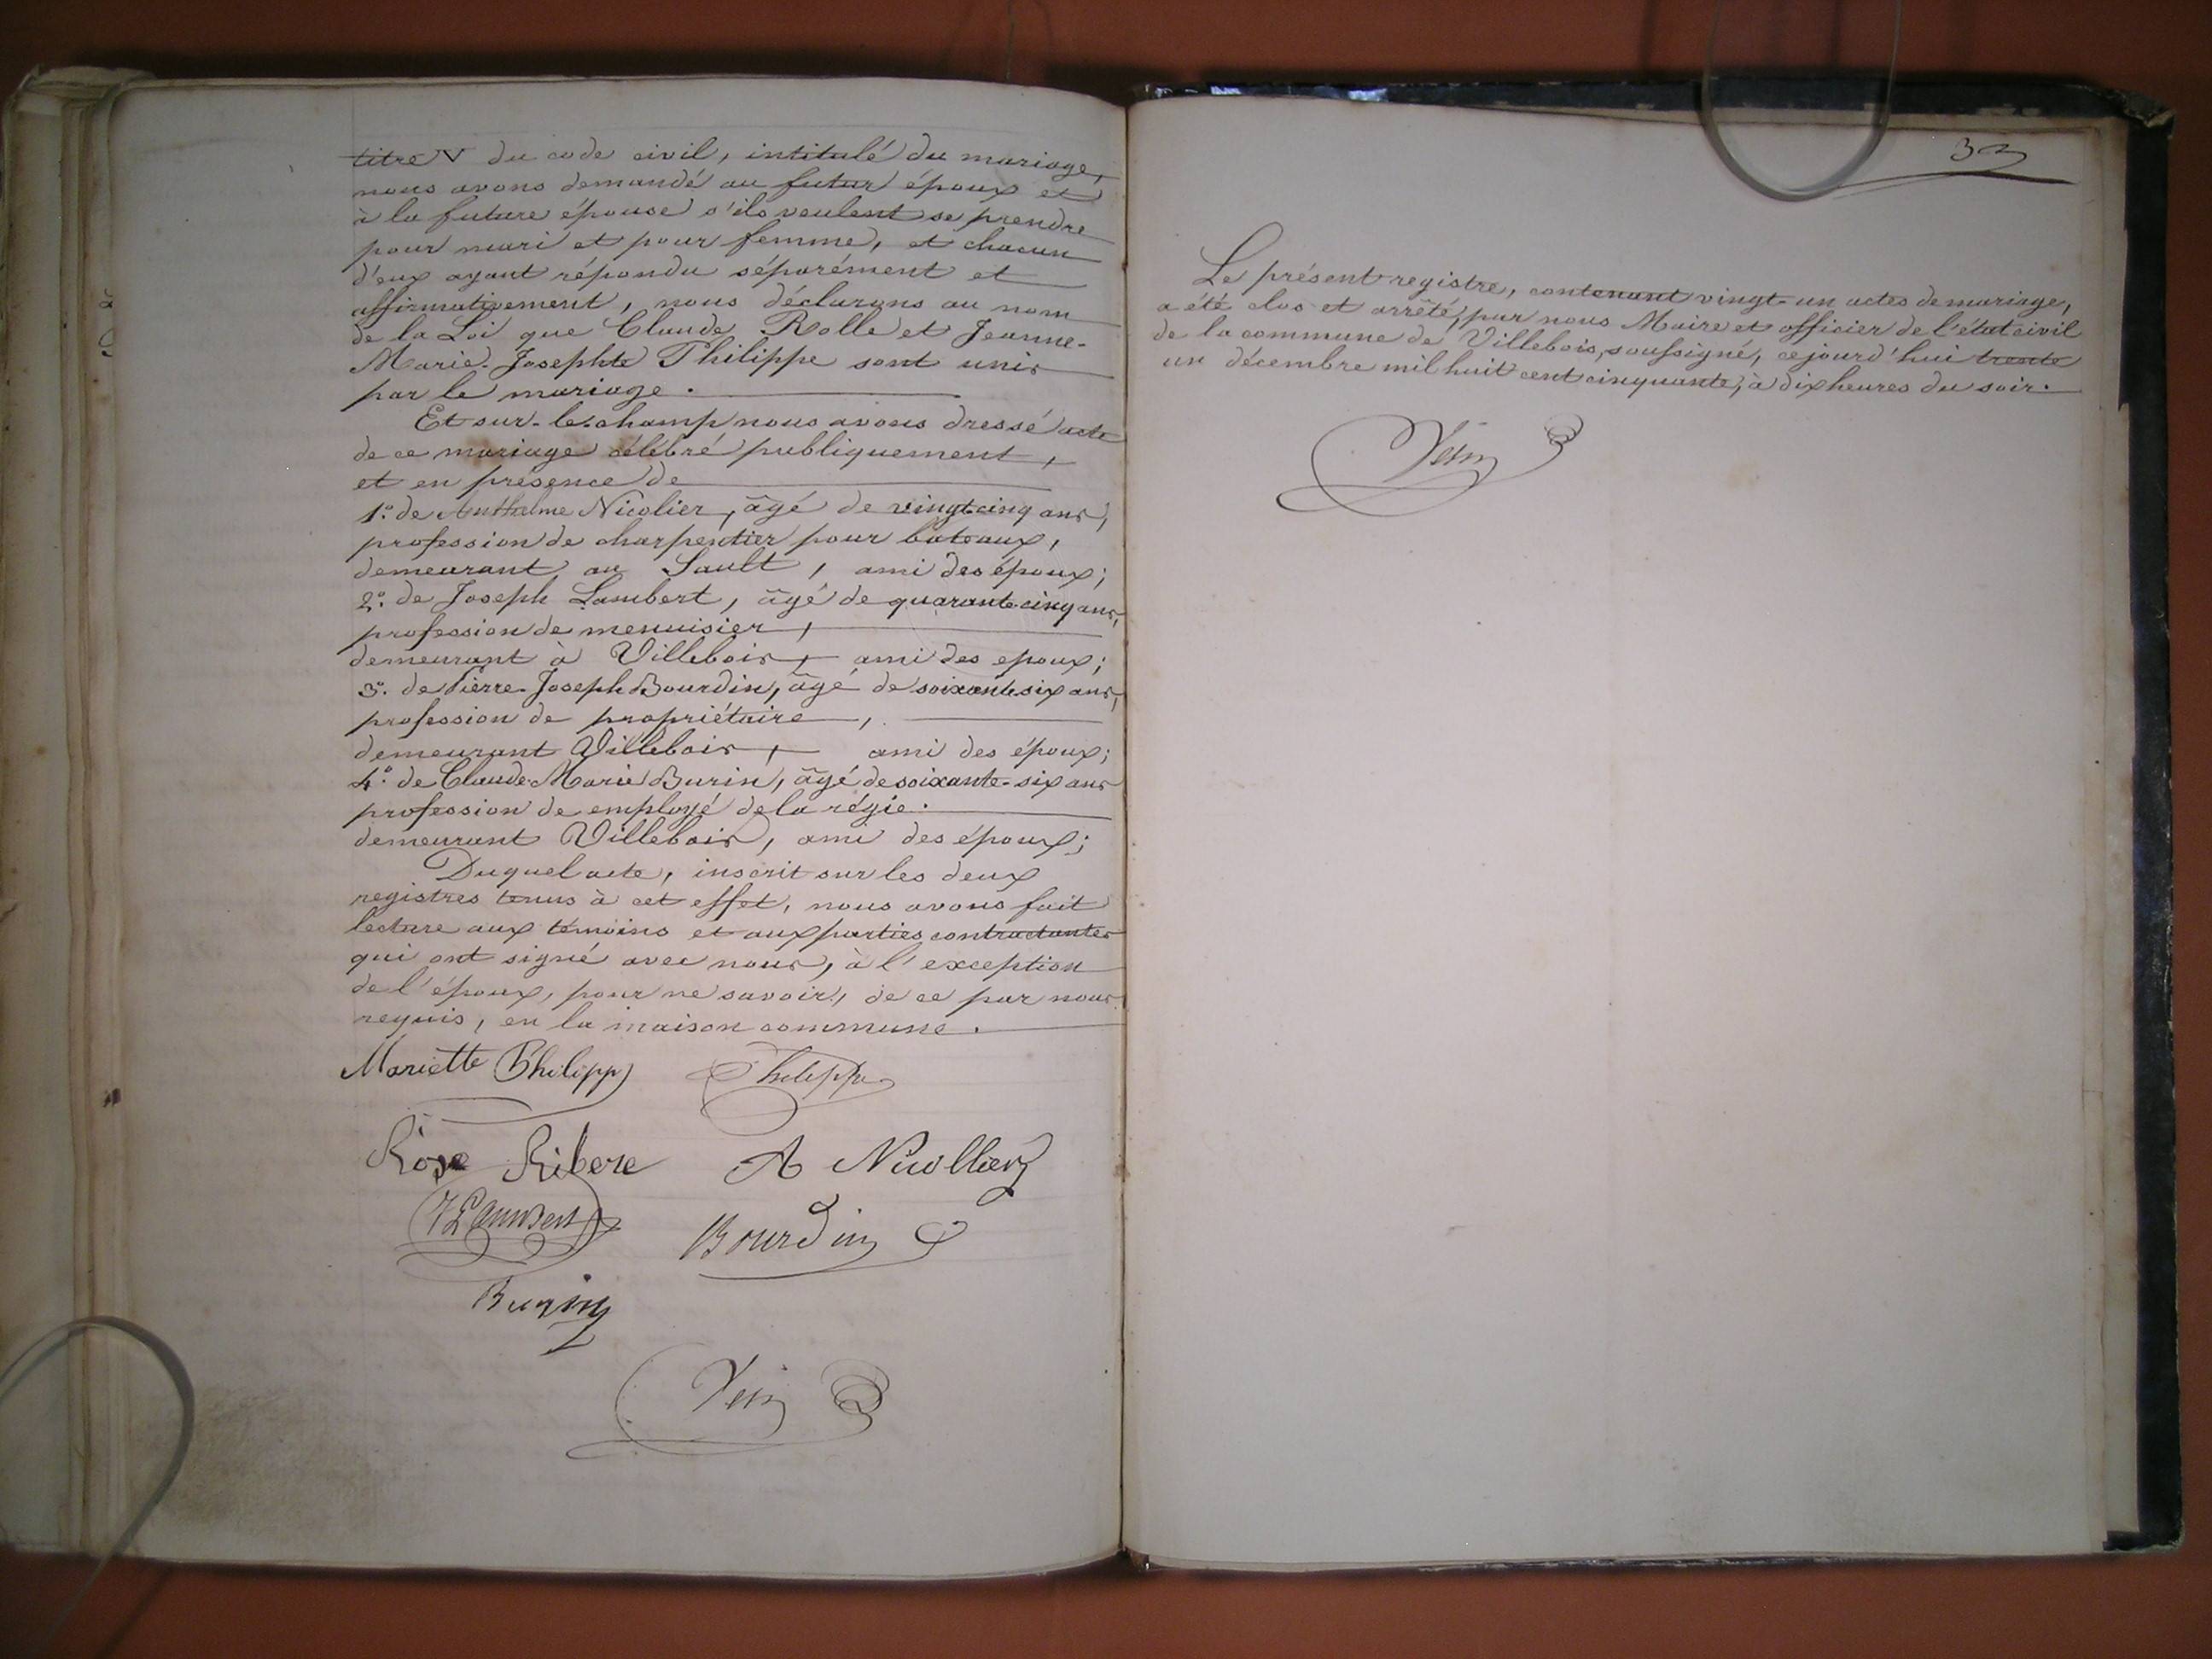 titre V du code civil, intitulé du mariage,
nous avons demandé au futur époux et
à la future épouse s'ils veulent se prendre
pour mari et pour femme, et chacun
d'eux ayant répondu séparément et
affirmativement, nous déclarons au nom
de la Loi que Claude Rolle et Jeanne-
Marie-Josephte Philippe sont unis
par le mariage.
Et sur-le-champ nous avons dressé acte
de ce mariage célébré publiquement,
et en présence de
1º. de Anthelme Nicolier, âgé de vingt cinq ans,
profession de charpentier pour bateaux,
demeurant au Sault, ami des époux;
2º. de Joseph Lambert, âgé de quarante cinq ans,
profession de menuisier,
demeurant à Villebois, ami des epoux;
3º. de Pierre-Joseph Bourdin, âgé de soixante six ans,
profession de propriétaire,
demeurant Villebois, ami des époux;
4º. de Claude-Marie Burin, âgé de soixante-six ans
profession de employé de la régie.
demeurant Villebois, ami des époux;
Duquel acte, inscrit sur les deux
registres tenus à cet effet, nous avons fait
lecture aux témoins et aux parties contractantes
qui ont signé avec nous, à l'exception
de l'époux, pour ne savoir, de ce par nous
requis, en la maison commune.
Mariette Philipp Philippe
Rose Ribere A Nicollier
J Lambert Bourdin
Burin
32
Le présent registre, contenant vingt-un actes de mariage,
a été clos et arrêté, par nous Maire et officier de l'état civil
de la commune de Villebois, soussigné, cejourd'hui trente
un décembre mil huit cent cinquante, à dix heures du soir.